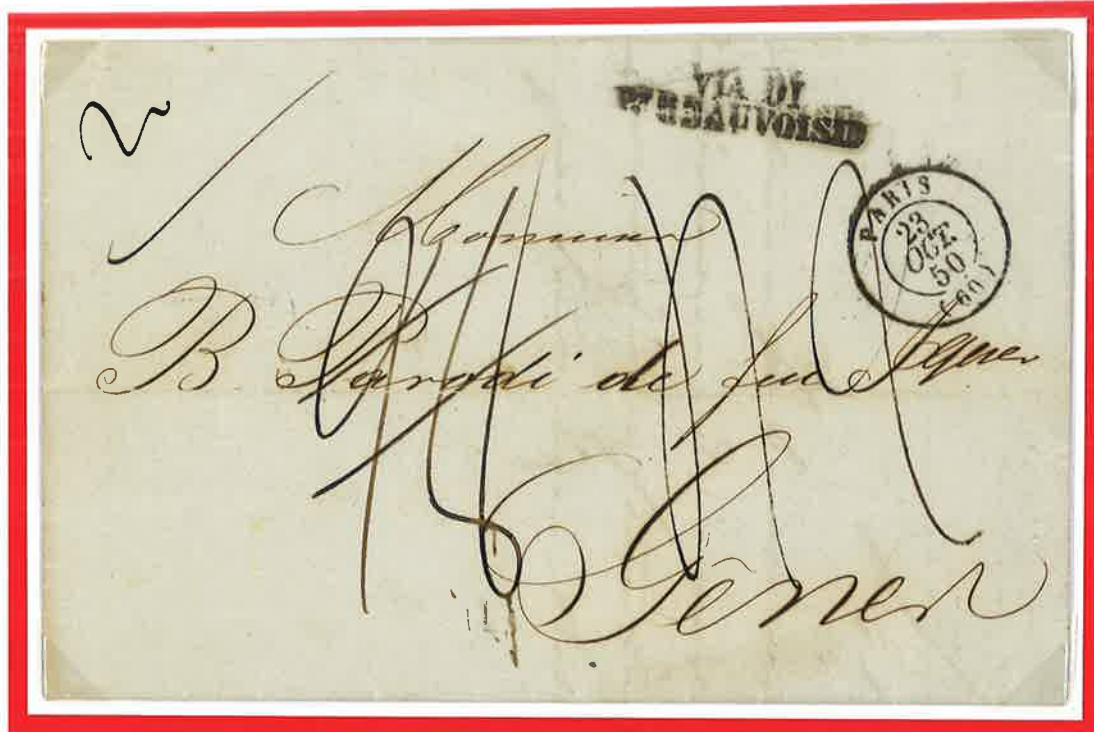 2
VIA DI
PT BEAUVOISIN
PARIS
23
OCT.
50
(60)
Monsieur
B. Parodi de feu
Gênes